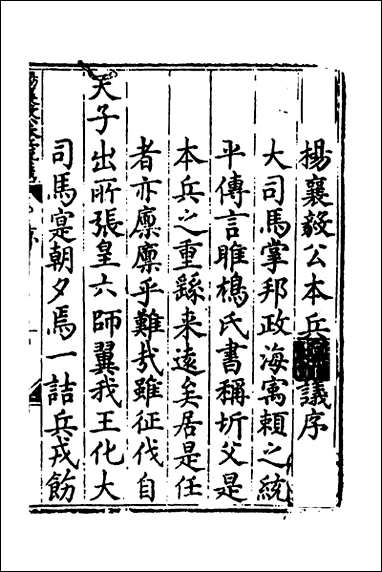 楊襄毅公本兵議序
大司馬掌邦政海寓頼之統
平傳言雎鳩氏書稱圻父是
本兵之重繇来遠矣居是任
者亦廩廩乎難㢤雖征伐自
天子出所張皇六師翼我王化大
司馬寔朝夕焉一詰兵戎飭